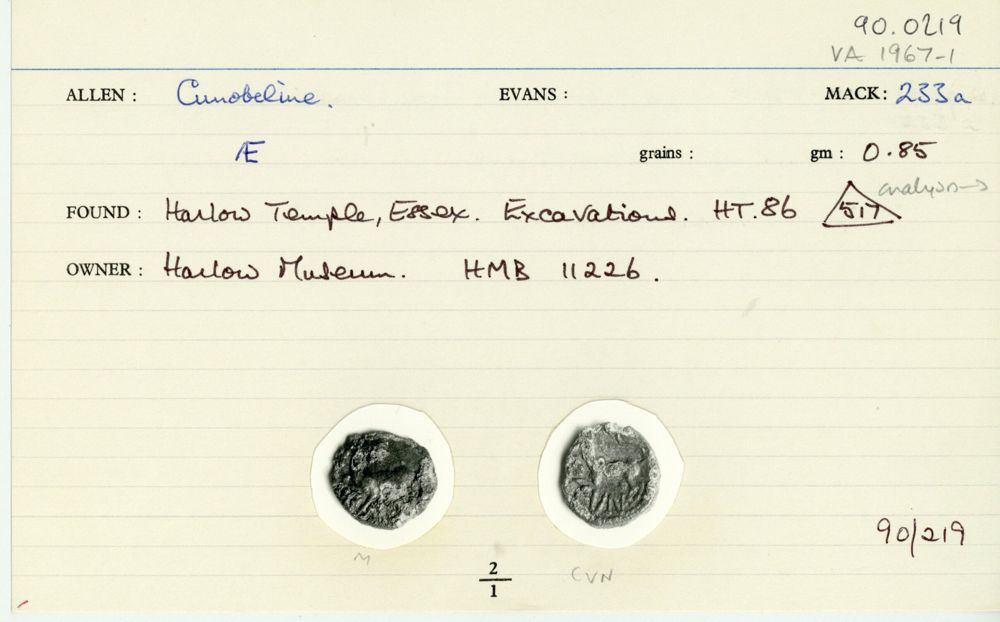 90.0219
VA 1967-1
ALLEN : Cunobeline. EVANS : MACK: 233a
Æ grains : gm : 0.85
analysis→
FOUND : Harlow Temple, Essex. Excavations. HT.86 517
OWNER : Harlow Museum. HMB 11226.
90/219
M
2
1
CVN